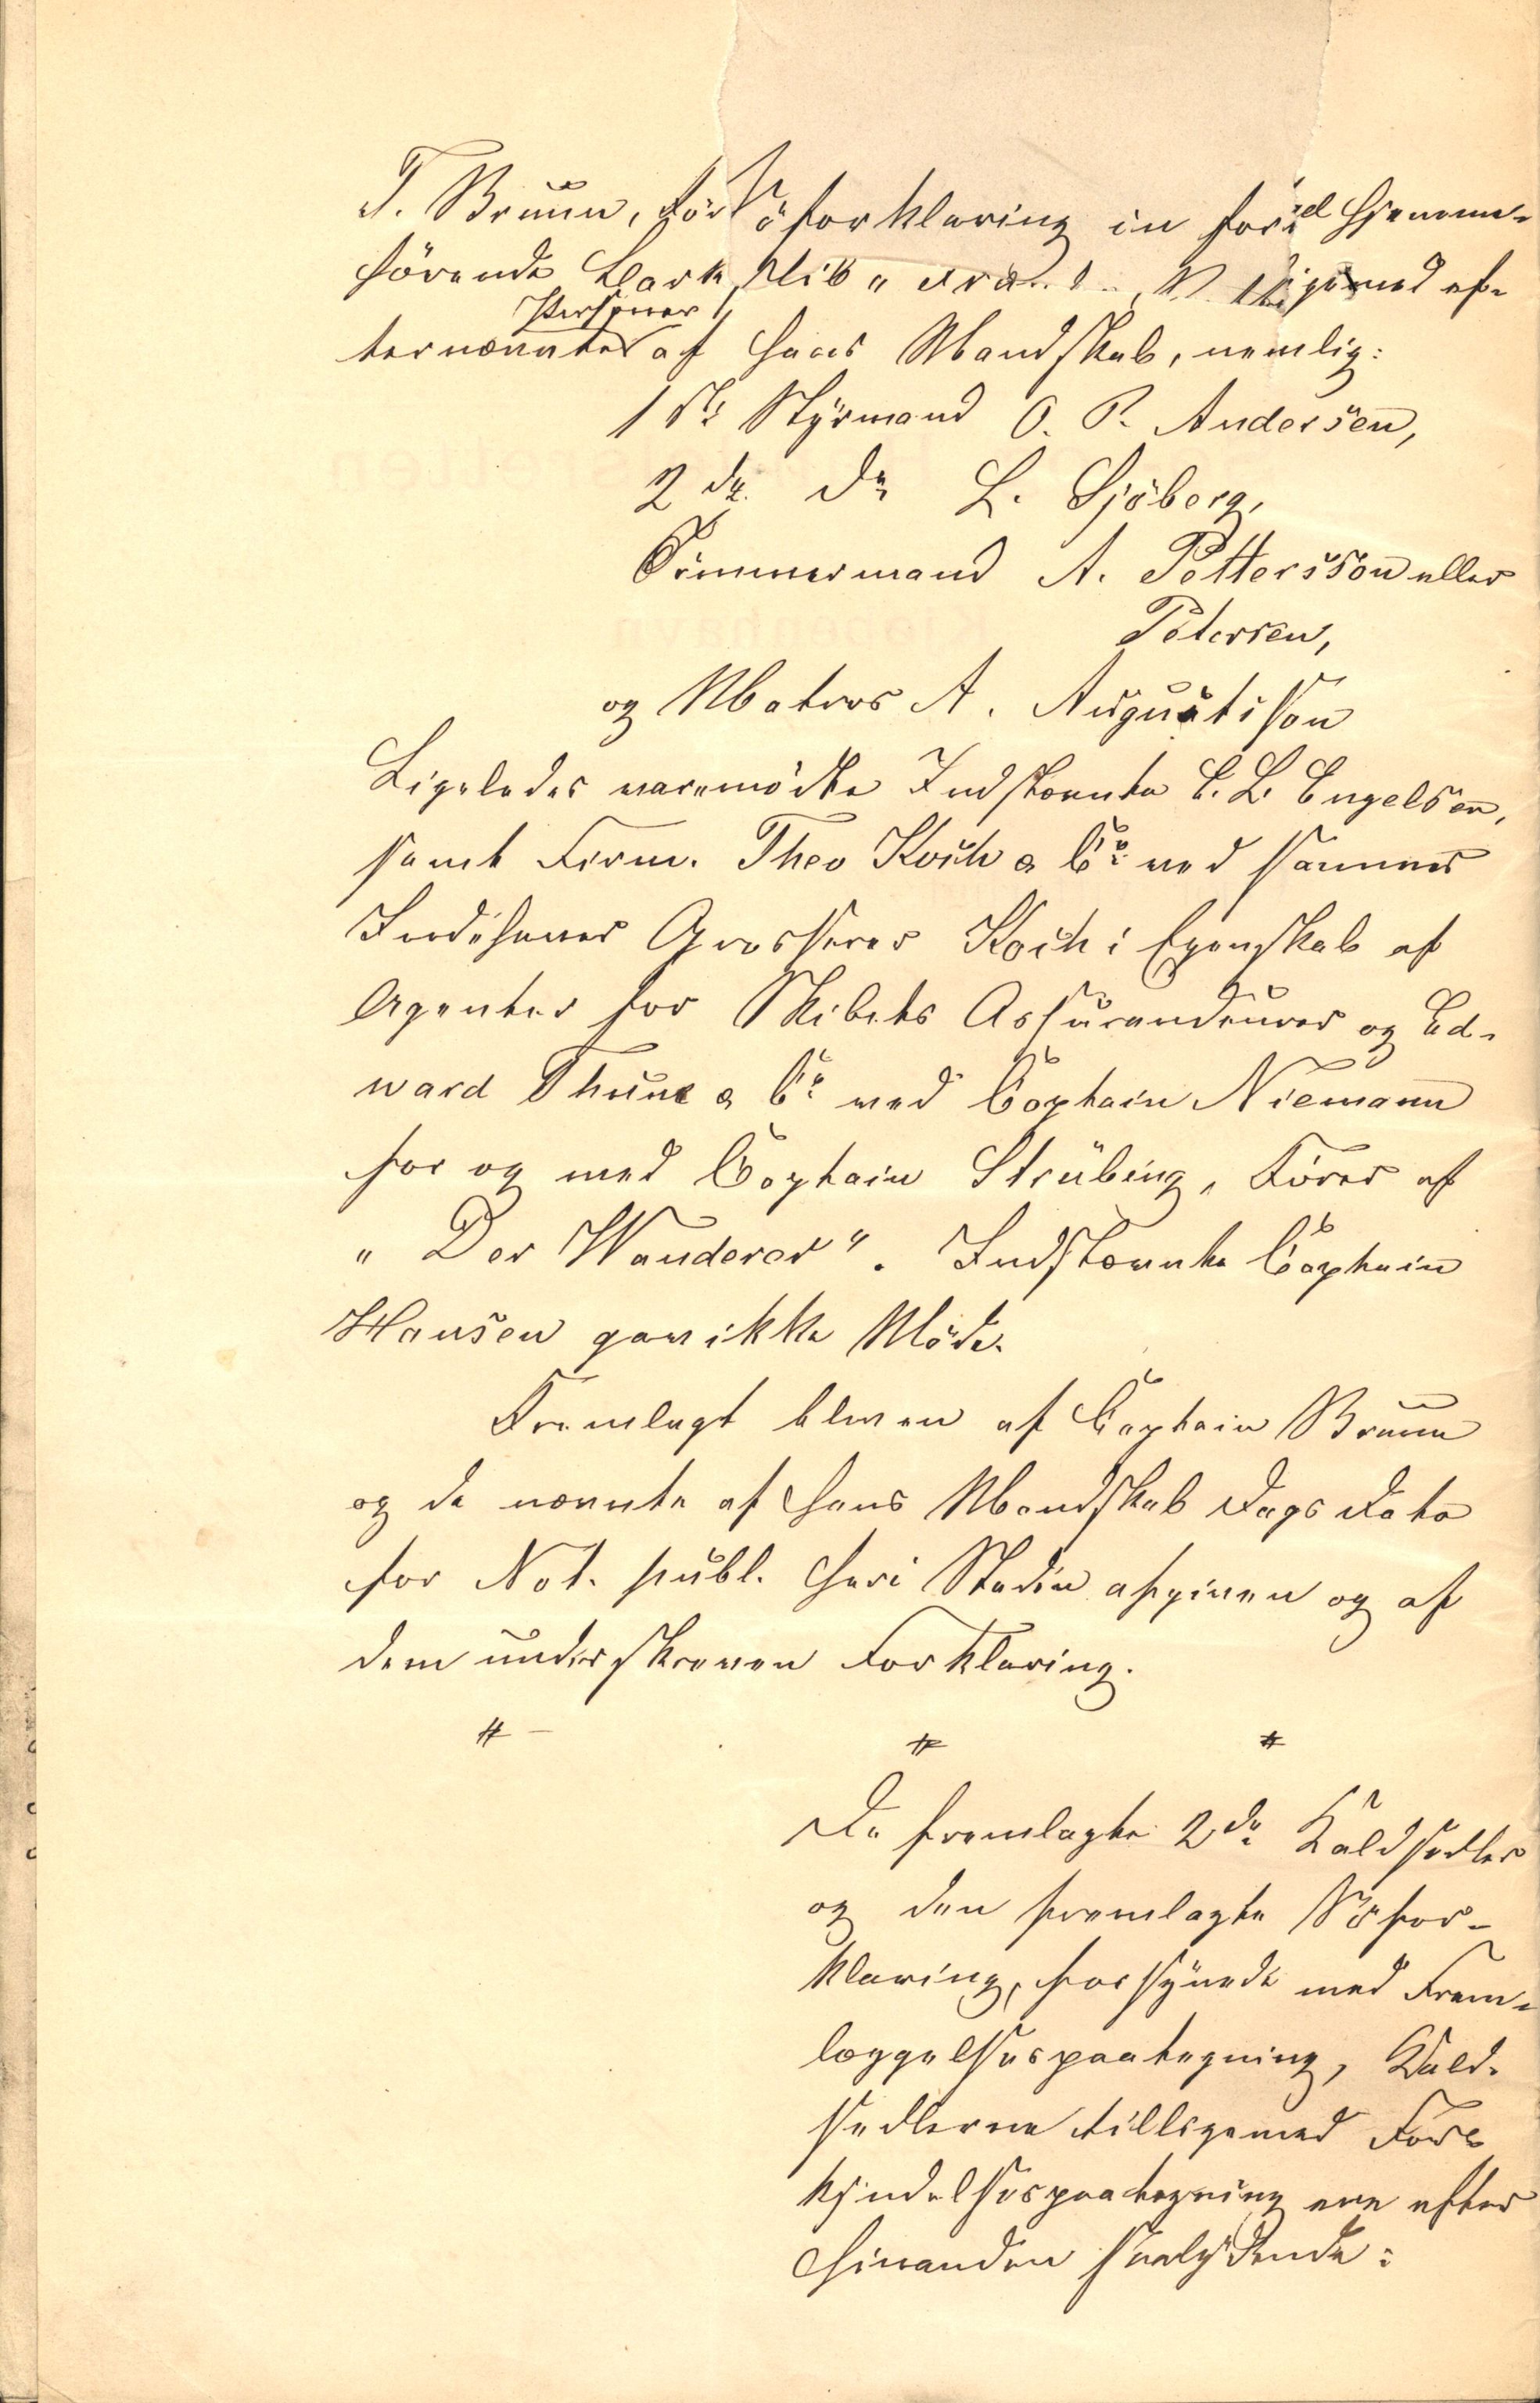 T. Bruun, Før Søforklaring in for hjemme-
hørende Bark Skib „ Fra med ef-
Personer
ternævnte af hans Mandskab, nemlig:
1ste Styrmand O. P. Andersen,
2de do L. Sjöberg,
Tømmermand A. Pettersson eller
Petersen,
og Matros A. Augustisson
Ligeledes varemødte Indstævnte C. L. Engelsen,
samt Firm. Theo Koch & Co ved sammes
Indehaver Grosserer Koch i Egenskab af
Agenter for Skibets Assurandeurer og Ed-
ward Thune & Co ved Captain Niemann
for og med Captain Strübing, Fører af
„ Der Wanderer". Indstævnte Captain
Hansen gav ikke Møde.
Fremlagt bleven af Captain Bruun
og de nævnte af hans Mandskab Dags Dato
for Not. publ. her i Staden afgiven og af
dem underskreven Forklaring.
# - # #
De fremlagte 2de Kaldsedler
og den fremlagte Søfor-
klaring, forsynede med Frem-
læggelsespaategning, Kald-
sedlerne tilligemed For-
kyndelsespaategning ere efter
hinanden saalydende: